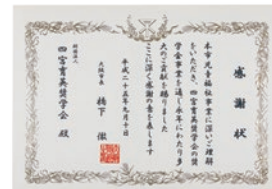 感謝状
本市児童福祉事業に深いご理解
をいただき 四宮育英奨学会の奨
学金事業を通し永年にわたり多
大のご貢献を賜りました
ここに深く感謝の意を表します
平成二十五年九月十日
大阪市長 橋下 徹
財団法人
四宮育英奨学会 殿